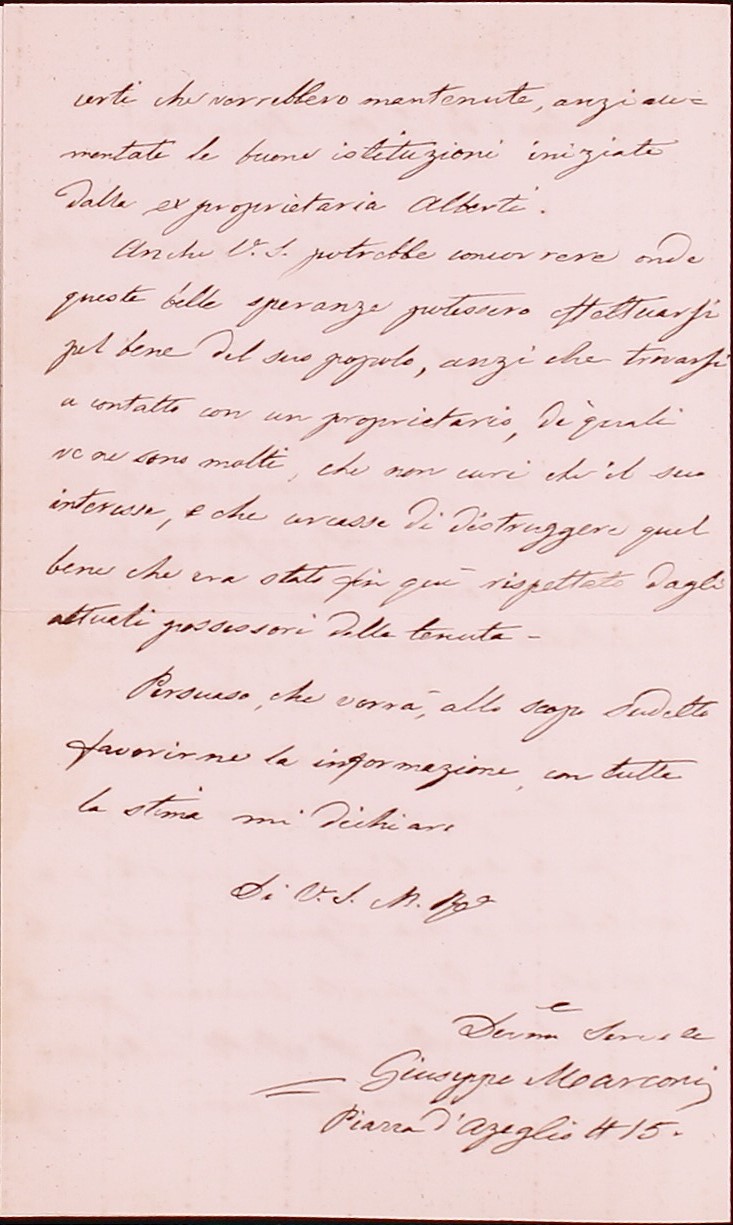 certi che verrebbero mantenute, anzi au=
mentate le buone istituzioni iniziate
dalla ex proprietaria Alberti.
Anche V. S. potrebbe concorrere onde
queste belle speranze potessero effettuarsi
pel bene del suo popolo, anzi che trovarsi
a contatto con un proprietario, de' quali
ve ne sono molti, che non curi che il suo
interesse, e che cercasse di distruggere quel
bene che era stato fin quì rispettato dagli
attuali possessori della tenuta -
Persuaso, che vorrà, allo scopo sudetto
favorirne la informazione, con tutta
la stima mi dichiaro
Di V. S. M. Rda
Giuseppe Marconi
Piazza d'Azeglio # 15.